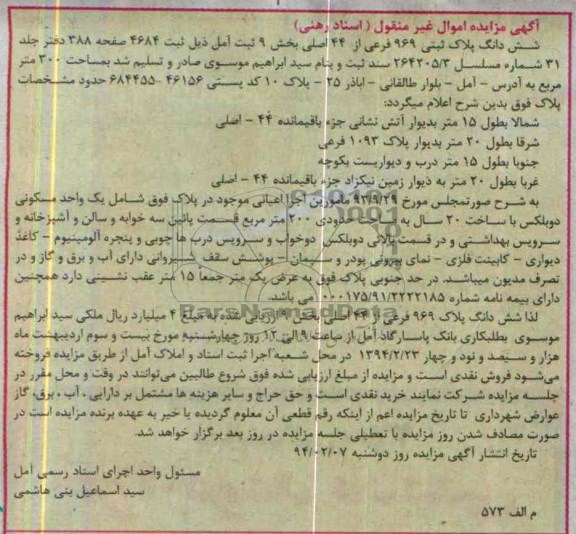 آگهی مزایده اموال غیر منقول ( اسناد رهنی)
شش دانگ پلاک ثبتی ۹۶۹ فرعی از ۴۴ اصلی بخش ۹ ثبت آمل ذیل ثبت ۴۶۸۴ صفحه ۳۸۸ دفتر جلد
۳۱ شماره مسلسل ۲۶۴۲۰۵/۳ سند ثبت و بنام سید ابراهیم موسوی صادر و تسلیم شد بمساحت ۳۰۰ متر
مربع به آدرس - آمل - بلوار طالقانی - اباذر ۲۵ - پلاک ۱۰ کد پستی ۴۶۱۵۶ -۶۸۴۴۵۵ حدود مشخصات
پلاک فوق بدین شرح اعلام میگردد:
شمالا بطول ۱۵ متر بدیوار آتش نشانی جزء باقیمانده ۴۴ - اصلی
شرقا بطول ۲۰ متر بدیوار پلاک ۱۰۹۳ فرعی
جنوبا بطول ۱۵ متر درب و دیواریست بکوچه
غربا بطول ۲۰ متر به دیوار زمین نیکزاد جزء باقیمانده ۴۴ - اصلی
به شرح صورتمجلس مورخ ۹۳/۹/۲۹ مامورین اجرا اعیانی موجود در پلاک فوق شامل یک واحد مسکونی
دوبلکس با ساخت ۲۰ سال به حدودی ۲۰۰ متر مربع قسمت پائین سه خوابه و سالن و آشپزخانه و
سرویس بهداشتی و در قسمت بالائی دوبلکس دوخواب و سرویس درب ها چوبی و پنجره آلومینیوم - کاغذ
دیواری - کابینت فلزی - نمای بیرونی پودر و سیمان - پوشش سقف شیروانی دارای آب و برق و گاز و در
تصرف مدیون میباشد. در حد جنوبی پلاک فوق به عرض یک متر جمعاً ۱۵ متر عقب نشینی دارد همچنین
دارای بیمه نامه شماره ۰۰۰۰۱۷۵/۹۱/۲۲۲۲۱۸۵ می باشد.
لذا شش دانگ پلاک ۹۶۹ فرعی از ۴۴ اصلی بخش ۹ ارزیابی شده به مبلغ ۴ میلیارد ریال ملکی سید ابراهیم
موسوی بطلبکاری بانک پاسارگاد آمل از ساعت ۹ الی ۱۲ روز چهارشنبه مورخ بیست و سوم اردیبهشت ماه
هزار و سیصد و نود و چهار ۱۳۹۴/۲/۲۳ در محل شعبه اجرا ثبت اسناد و املاک آمل از طریق مزایده فروخته
می‌شود فروش نقدی است و مزایده از مبلغ ارزیابی شده فوق شروع طالبین می‌توانند در وقت و محل مقرر در
جلسه مزایده شرکت نمایند خرید نقدی است و حق حراج و سایر هزینه ها مشتمل بر دارایی ، آب ، برق، گاز
عوارض شهرداری تا تاریخ مزایده اعم از اینکه رقم قطعی آن معلوم گردیده یا خیر به عهده برنده مزایده است در
صورت مصادف شدن روز مزایده با تعطیلی جلسه مزایده در روز بعد برگزار خواهد شد.
تاریخ انتشار آگهی مزایده روز دوشنبه ۹۴/۰۲/۰۷
مسئول واحد اجرای اسناد رسمی آمل
سید اسماعیل بنی هاشمی
م الف ۵۷۳